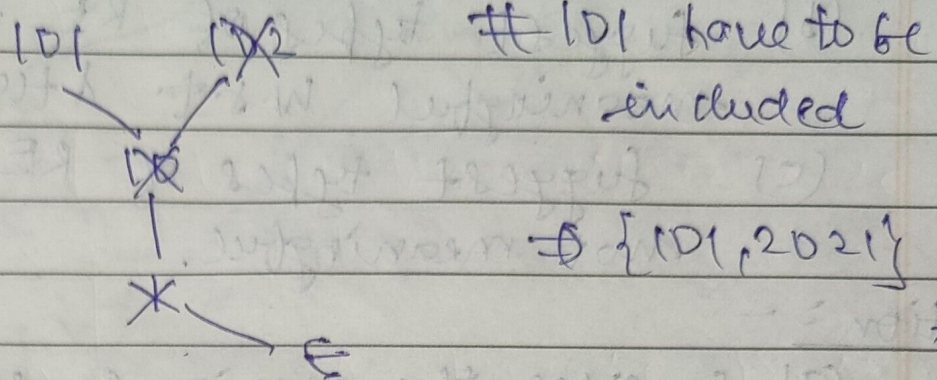 101 102 # 101 have to be
included
10
⇒ {101, 2021}
*
ε